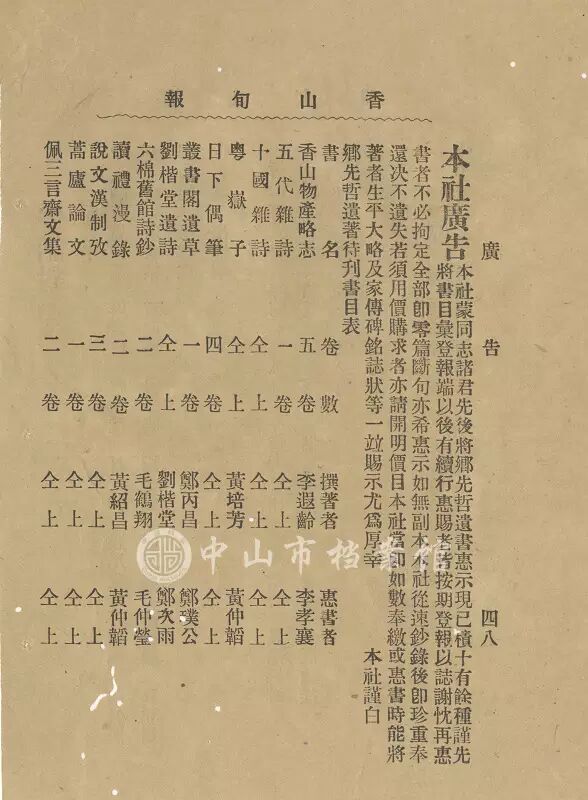 香山旬報
廣告 四八
本社廣告 本社蒙同志諸君先後將鄉先哲遺書惠示現已積十有餘種謹先
將書目彙登報端以後有續行惠賜者皆按期登報以誌謝忱再惠
書者不必拘定全部卽零篇斷句亦希惠示如無副本本社從速鈔錄後卽珍重奉
還决不遺失若須用價購求者亦請開明價目本社當卽如數奉繳或惠書時能將
著者生平大略及家傳碑銘誌狀等一竝賜示尤爲厚幸 本社謹白
鄉先哲遺著待刊書目表
書名 卷數 撰著者 惠書者
香山物產略志 五卷 李遐齡 李孝襄
五代雜詩 一卷 仝上 仝上
十國雜詩 仝上 仝上 仝上
粵嶽子 仝上 黃培芳 黃仲韜
日下偶筆 四卷 仝上 仝上
叢書閣遺草 一卷 鄭丙昌 鄭璞公
劉楷堂遺詩 仝上 劉楷堂 鄭次雨
六棉舊館詩鈔 二卷 毛鶴翔 毛仲瑩
讀禮漫錄 二卷 黃紹昌 黃仲韜
說文漢制攷 三卷 仝上 仝上
蒿廬論文 一卷 仝上 仝上
佩三言齋文集 二卷 仝上 仝上
中山市档案馆